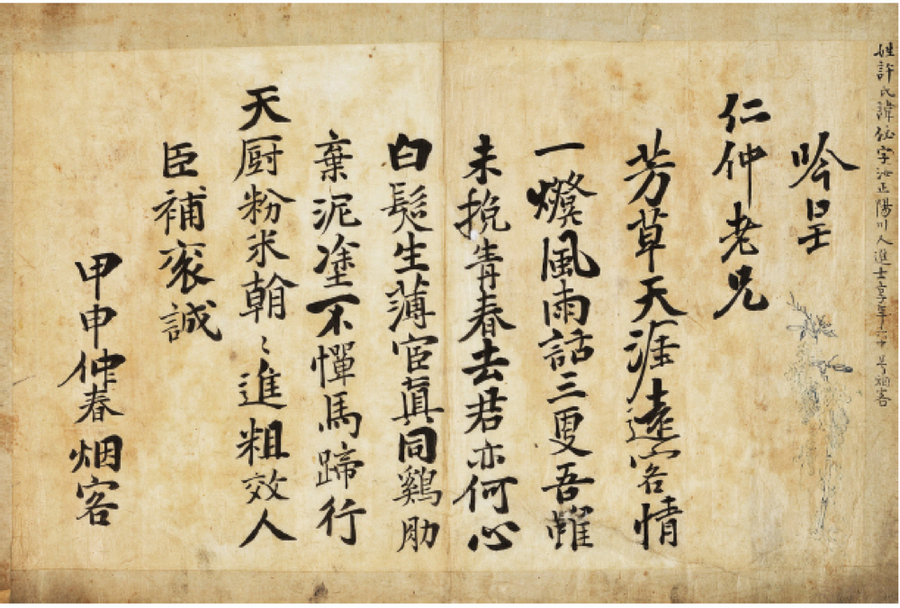 姓許氏諱佖字汝正陽川人進士享年六十号烟客
吟呈
仁仲老兄
芳草天涯遠客情
一燈風雨話三更吾雖
未挽青春去君亦何心
白髮生薄宦眞同鷄肋
棄泥塗不憚馬蹄行
天厨粉米翰〻進粗效人
臣補袞誠
甲申仲春烟客